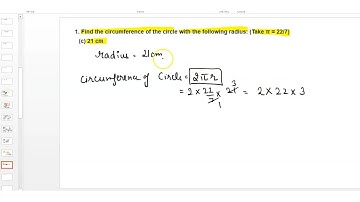 1. Find the circumference of the circle with the following radius: (Take π = 22/7)
(c) 21 cm
radius = 21cm.
Circumference of Circle = 2πr
= 2 × 22/7 × 21 3 = 2 × 22 × 3
1